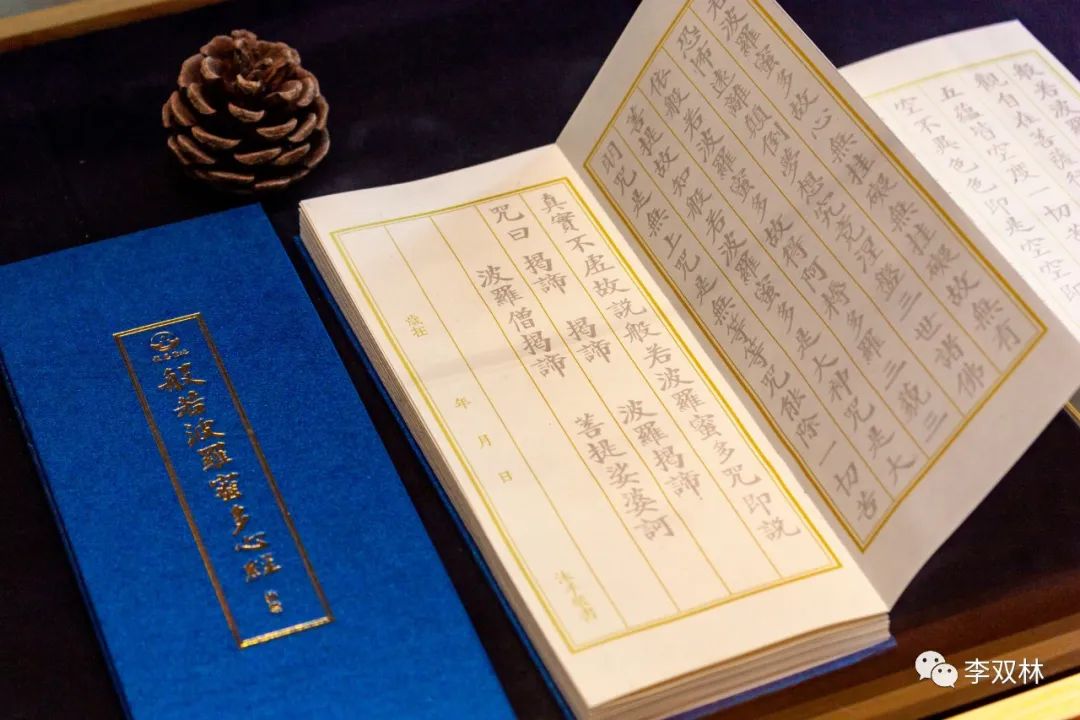 般若波羅蜜多心經
般若波羅
觀自在菩薩行
五蘊皆空度一切苦
空不異色色即是空空即
若波羅蜜多故心無挂礙無挂礙故無有
恐怖遠離顛倒夢想究竟涅槃三世諸佛
依般若波羅蜜多故得阿耨多羅三藐三
菩提故知般若波羅蜜多是大神咒是大
明咒是無上咒是無等等咒能除一切苦
真實不虛故說般若波羅蜜多咒即說
咒曰 揭諦 揭諦 波羅揭諦
波羅僧揭諦 菩提娑婆訶
歲在 年 月 日
沐手敬書
李双林